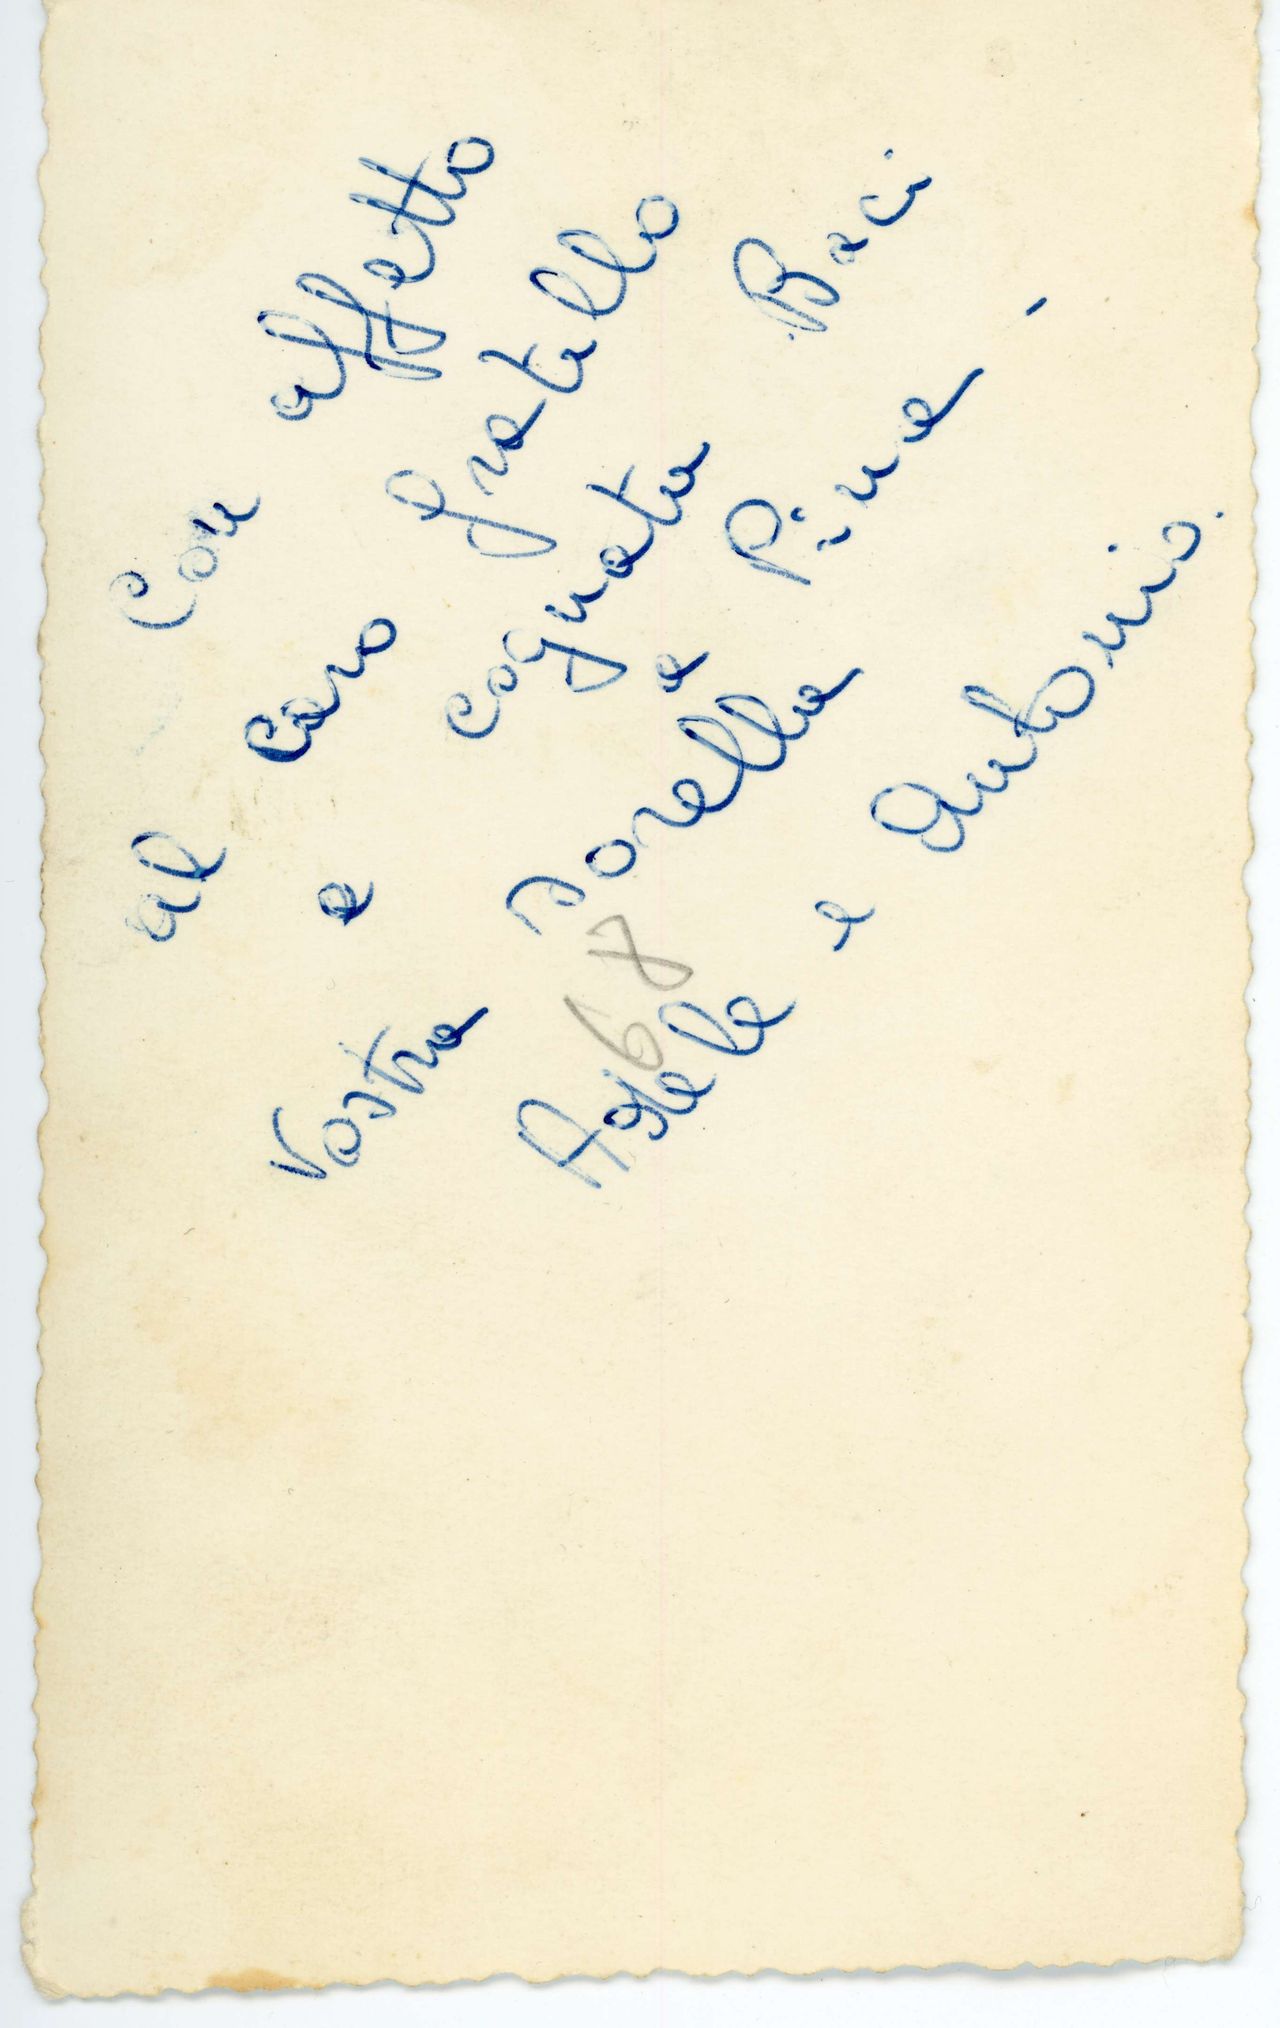 Con affetto
al caro fratello
e cognata Baci
Vostra sorella e Pina -
Adele e Antonio.
68